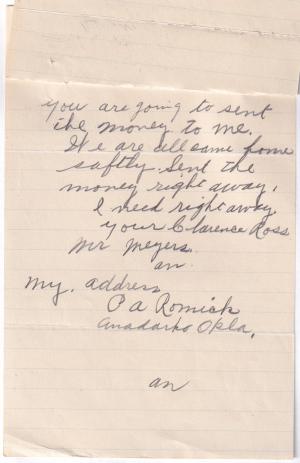 you are going to sent
the money to me.
We are all same home
saftly. Sent the
money right away,
I need right away
your Clarence Ross
Mr Meyers.
an
My. address
P a Romick
Anadarko Okla.
an